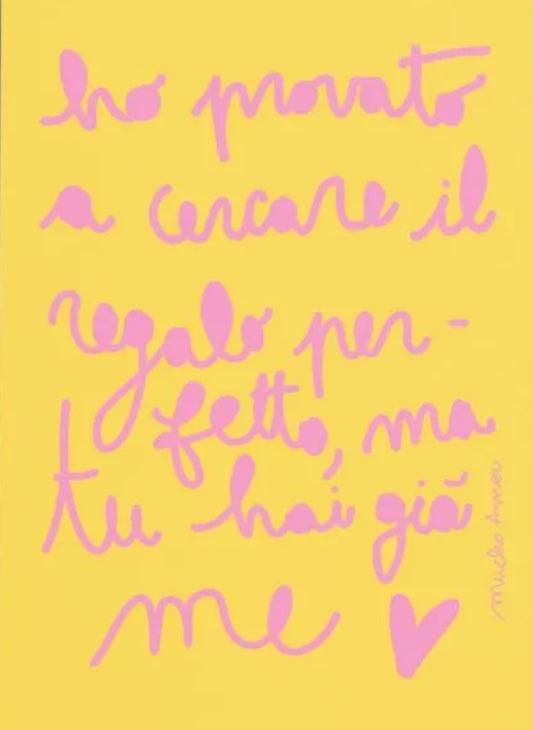 ho provato
a cercare il
regalo per-
fetto, ma
tu hai già
me
mucho Amor